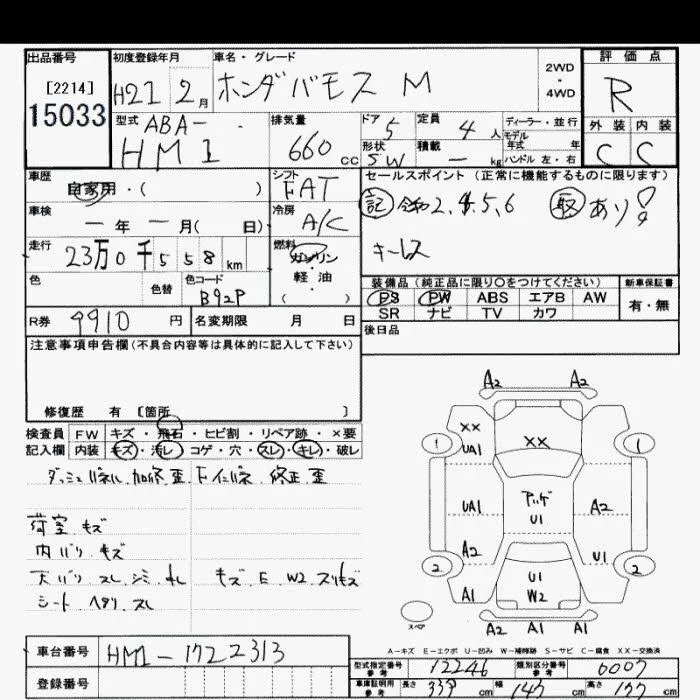 出品番号
[2214]
15033
初度登録年月
H21 2月
車名・グレード
ホンダバモス M
2WD
・
4WD
評価点
R
型式
ABA-
HM1
排気量
660 cc
ドア
5
形状
SW
定員
4人
積載
— kg
ディーラー・並行
モデル
年式 年
ハンドル 左・右
外装 内装
C C
車歴
自家用・( )
シフト
FAT
車検
—年—月( 日)
冷房
A/C
走行
23万0千558km
燃料
ガソリン
・
軽油
( )
色
色替
色コード
B92P
R券
9910円
名変期限 月 日
セールスポイント(正常に機能するものに限ります)
記 令和2,4,5,6 取あり
キーレス
装備品(純正品に限り○をつけてください)
PS PW ABS エアB AW
SR ナビ TV カワ
新車保証書
有・無
後日品
注意事項申告欄(不具合内容等は具体的に記入して下さい)
修復歴 有 〔箇所 〕
検査員
記入欄
FW キズ・飛石・ヒビ割・リペア跡・×要
内装 キズ・汚レ・コゲ・穴・スレ・キレ・破レ
ダッシュパネル 加修.歪. Fインパネ 修正.歪
荷室 キズ
内バリ.キズ
天バリ.スレ.シミ.キレ
キズ.E.W2.スリキズ
シート ヘタリ.スレ
A2 A2
XX
UA1
XX
1 1
UA1
アッゲ
U1
A2
A2
U1
2 2
A1
U1
W2
A1
スペア
A2 A1 A1
A−キズ E−エクボ U−凹み W−補修跡 S−サビ C−腐食 XX−交換済
車台番号
HM1-1722313
登録番号
型式指定番号
参考
12246
類別区分番号
参考
0007
車庫証明用
参考
長さ 339cm
幅 147cm
高さ 177cm